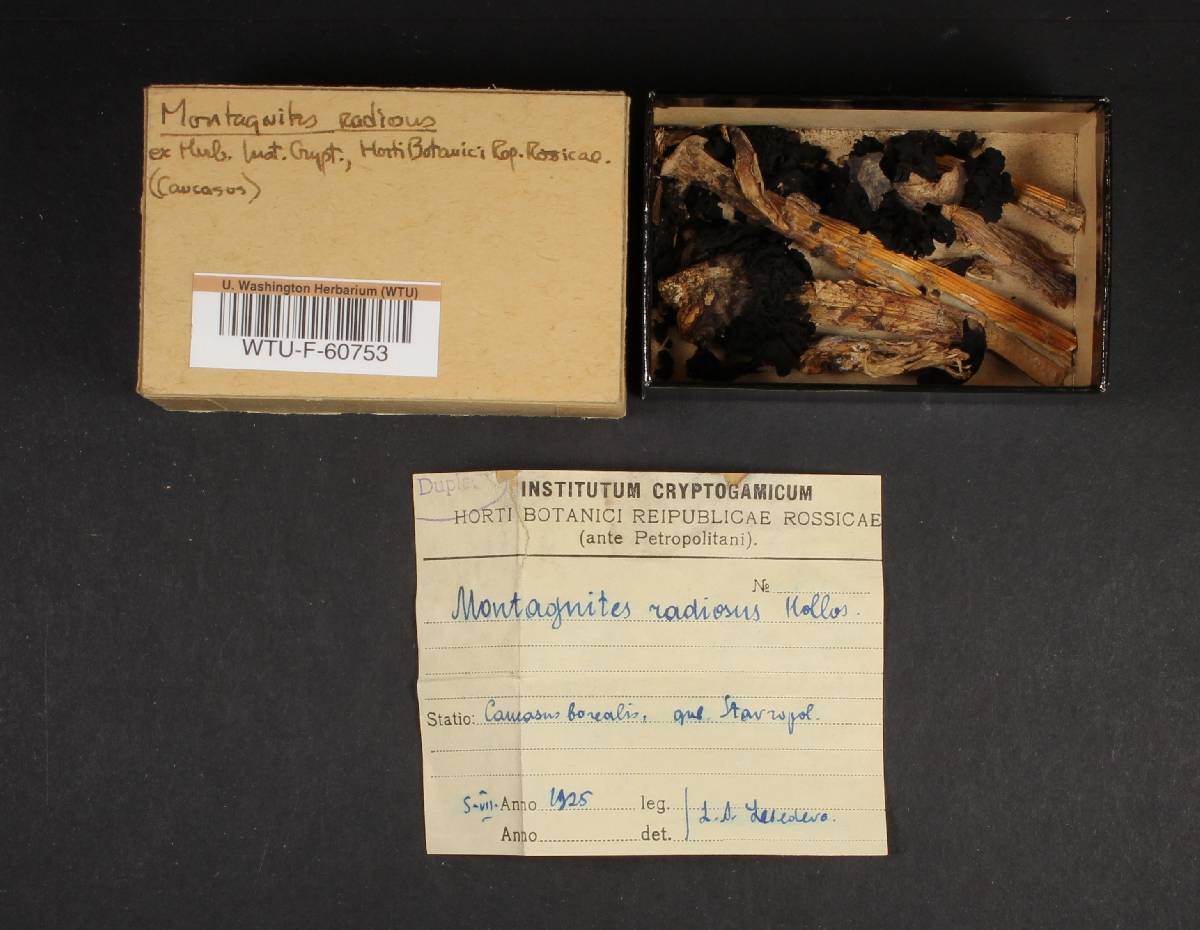 Montagnites radiosus
ex Herb. Inst. Crypt., Horti Botanici Rep. Rossicae.
(Caucasus)
U. Washington Herbarium (WTU)
WTU-F-60753
Duplex
INSTITUTUM CRYPTOGAMICUM
HORTI BOTANICI REIPUBLICAE ROSSICAE
(ante Petropolitani).
№
Montagnites radiosus Hollos.
Statio: Caucasus borealis, gub. Stavropol.
5-VII- Anno 1925 leg.
Anno det. L. A. Lebedeva.